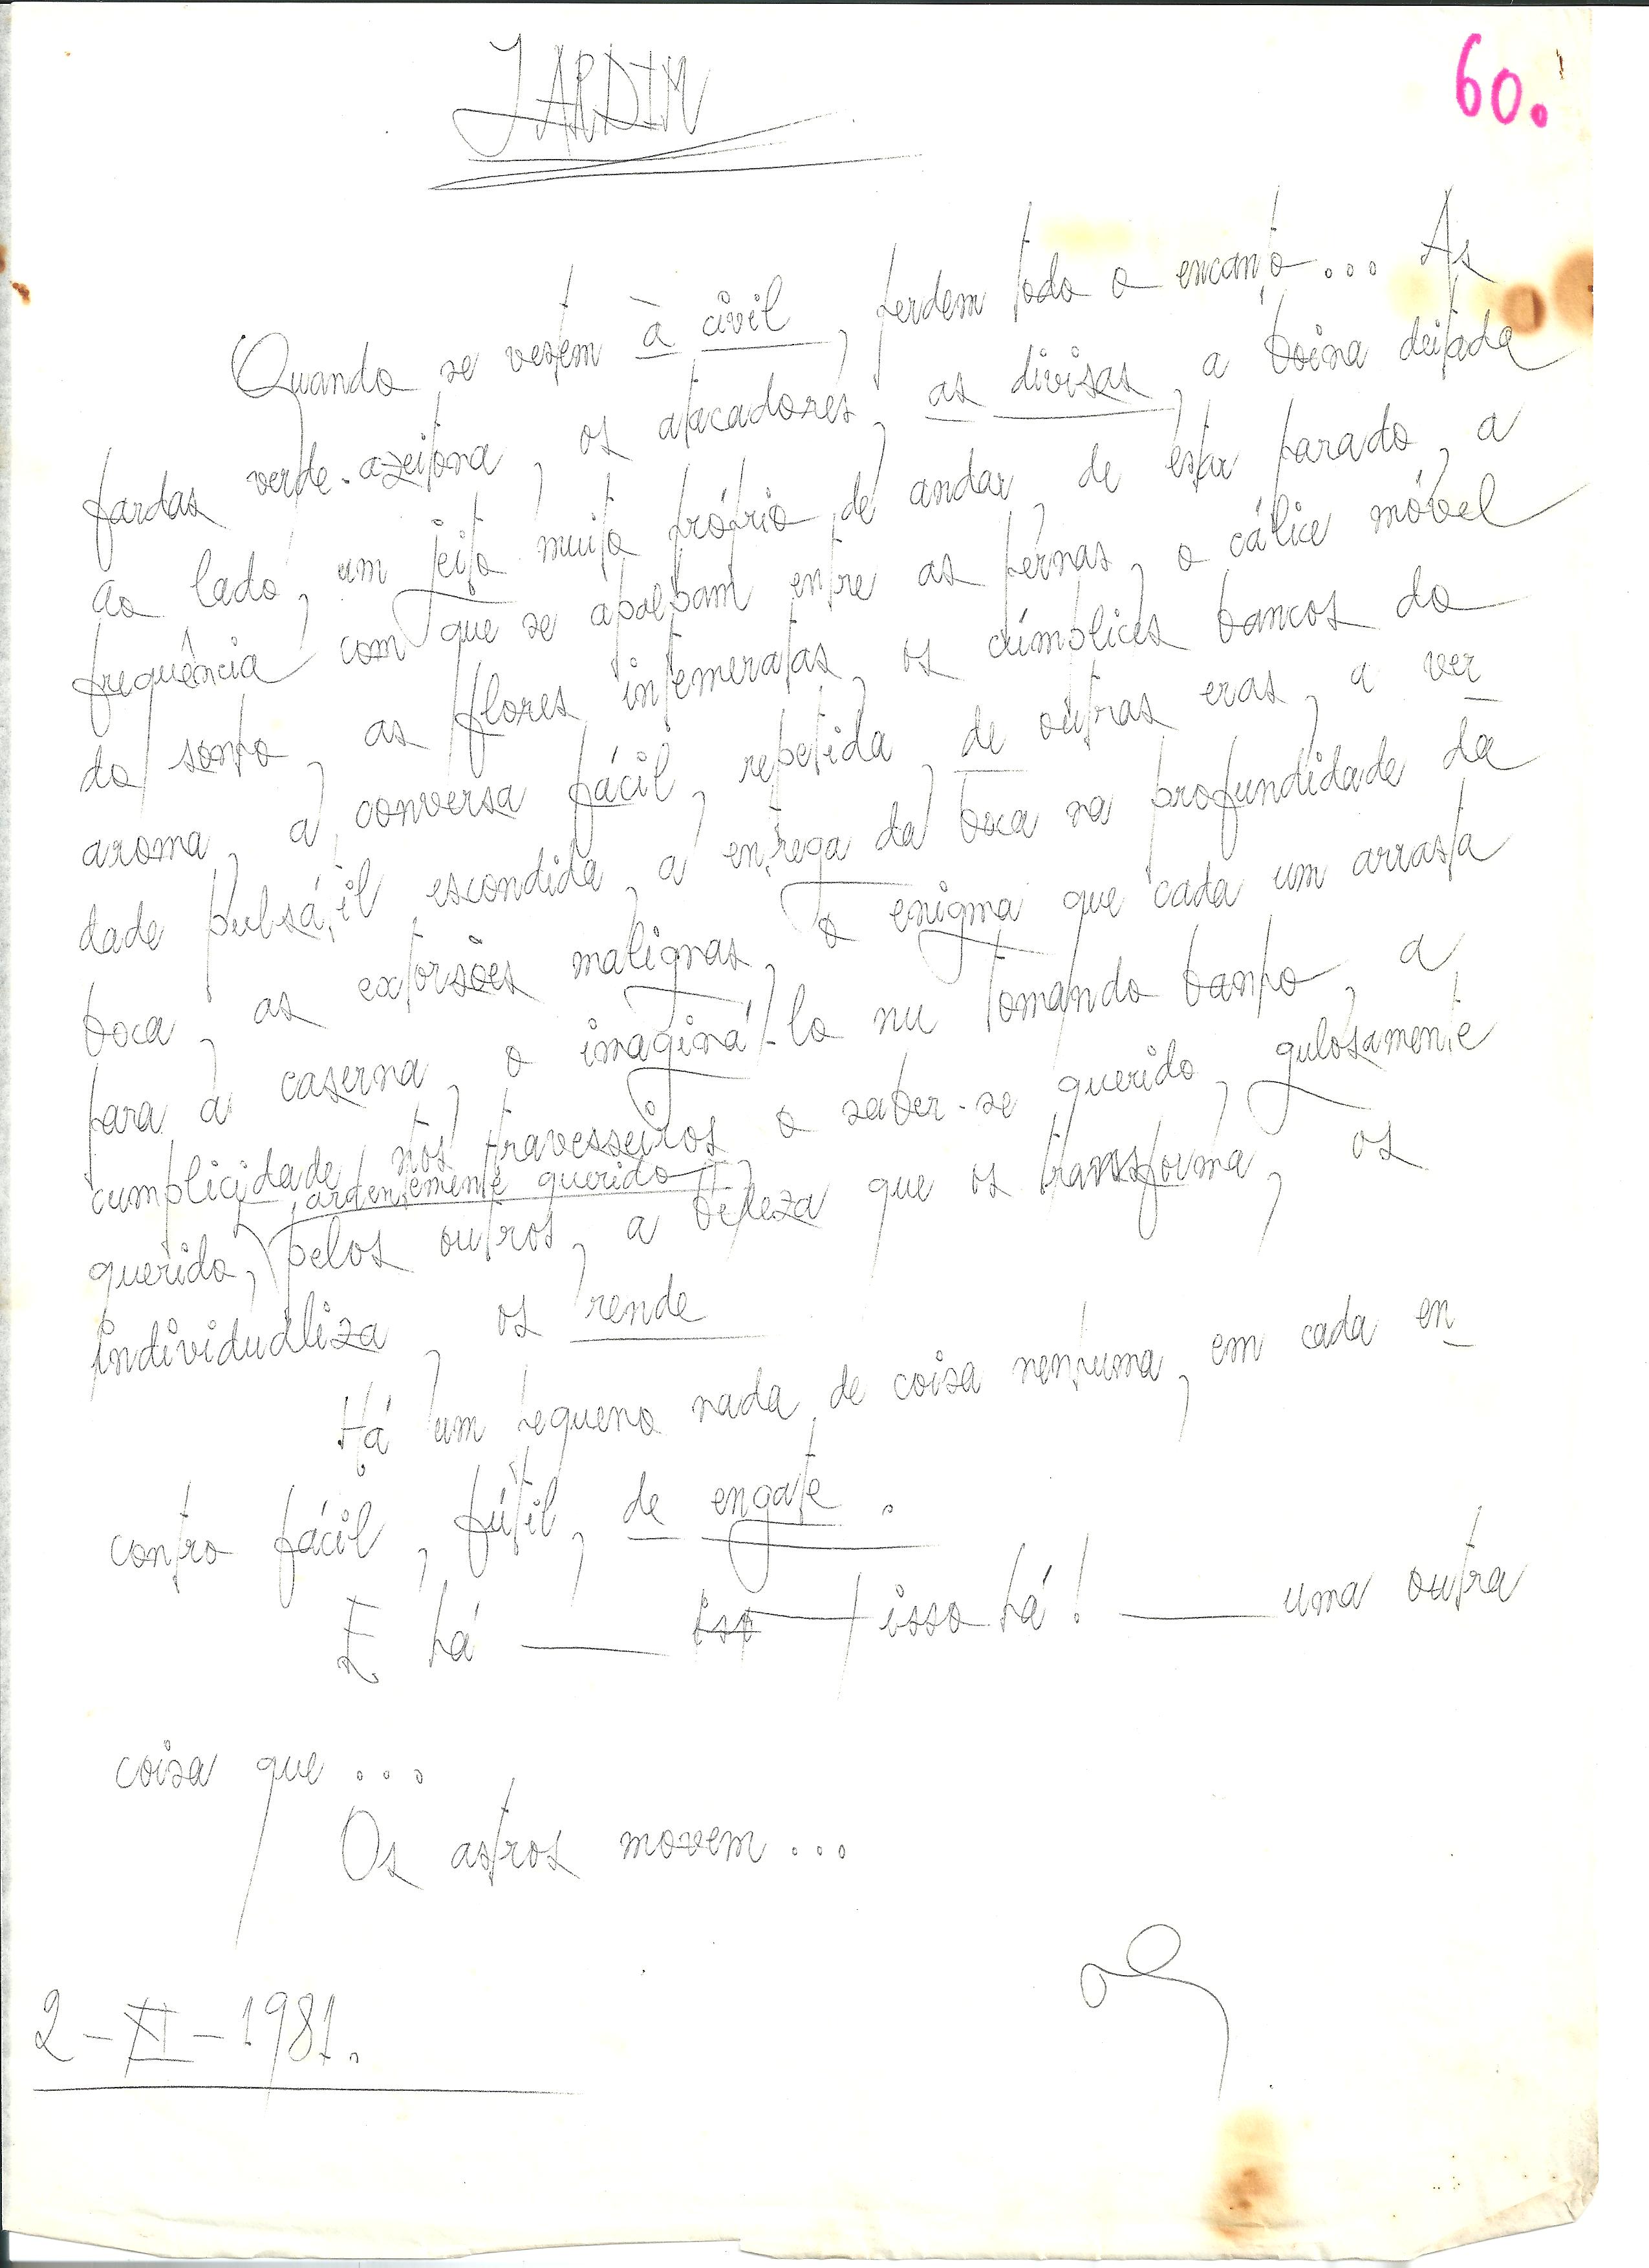 JARDIM
60.
Quando se vestem à civil, perdem todo o encanto... As
fardas verde-azeitona, os atacadores, as divisas, a boina deitada
ao lado, um jeito muito próprio de andar, de estar parado, a
frequência com que se apalpam entre as pernas, o cálice móvel
do sonho, as flores intemeratas, os cúmplices bancos do
aroma, a conversa fácil, repetida, de outras eras, a ver-
dade pulsátil escondida, a entrega da boca na profundidade da
boca, as extorsões malignas, o enigma que cada um arrasta
para a caserna, o imaginá-lo nu tomando banho, a
cumplicidade nos travesseiros o saber-se querido, gulosamente
ardentemente querido
querido, pelos outros, a beleza que os transforma, os
individualiza, os rende
Há um pequeno nada de coisa nenhuma, em cada en-
contro fácil, fútil, de engate.
E há — isso há! — uma outra
coisa que...
Os astros movem...
2-XI-1981.